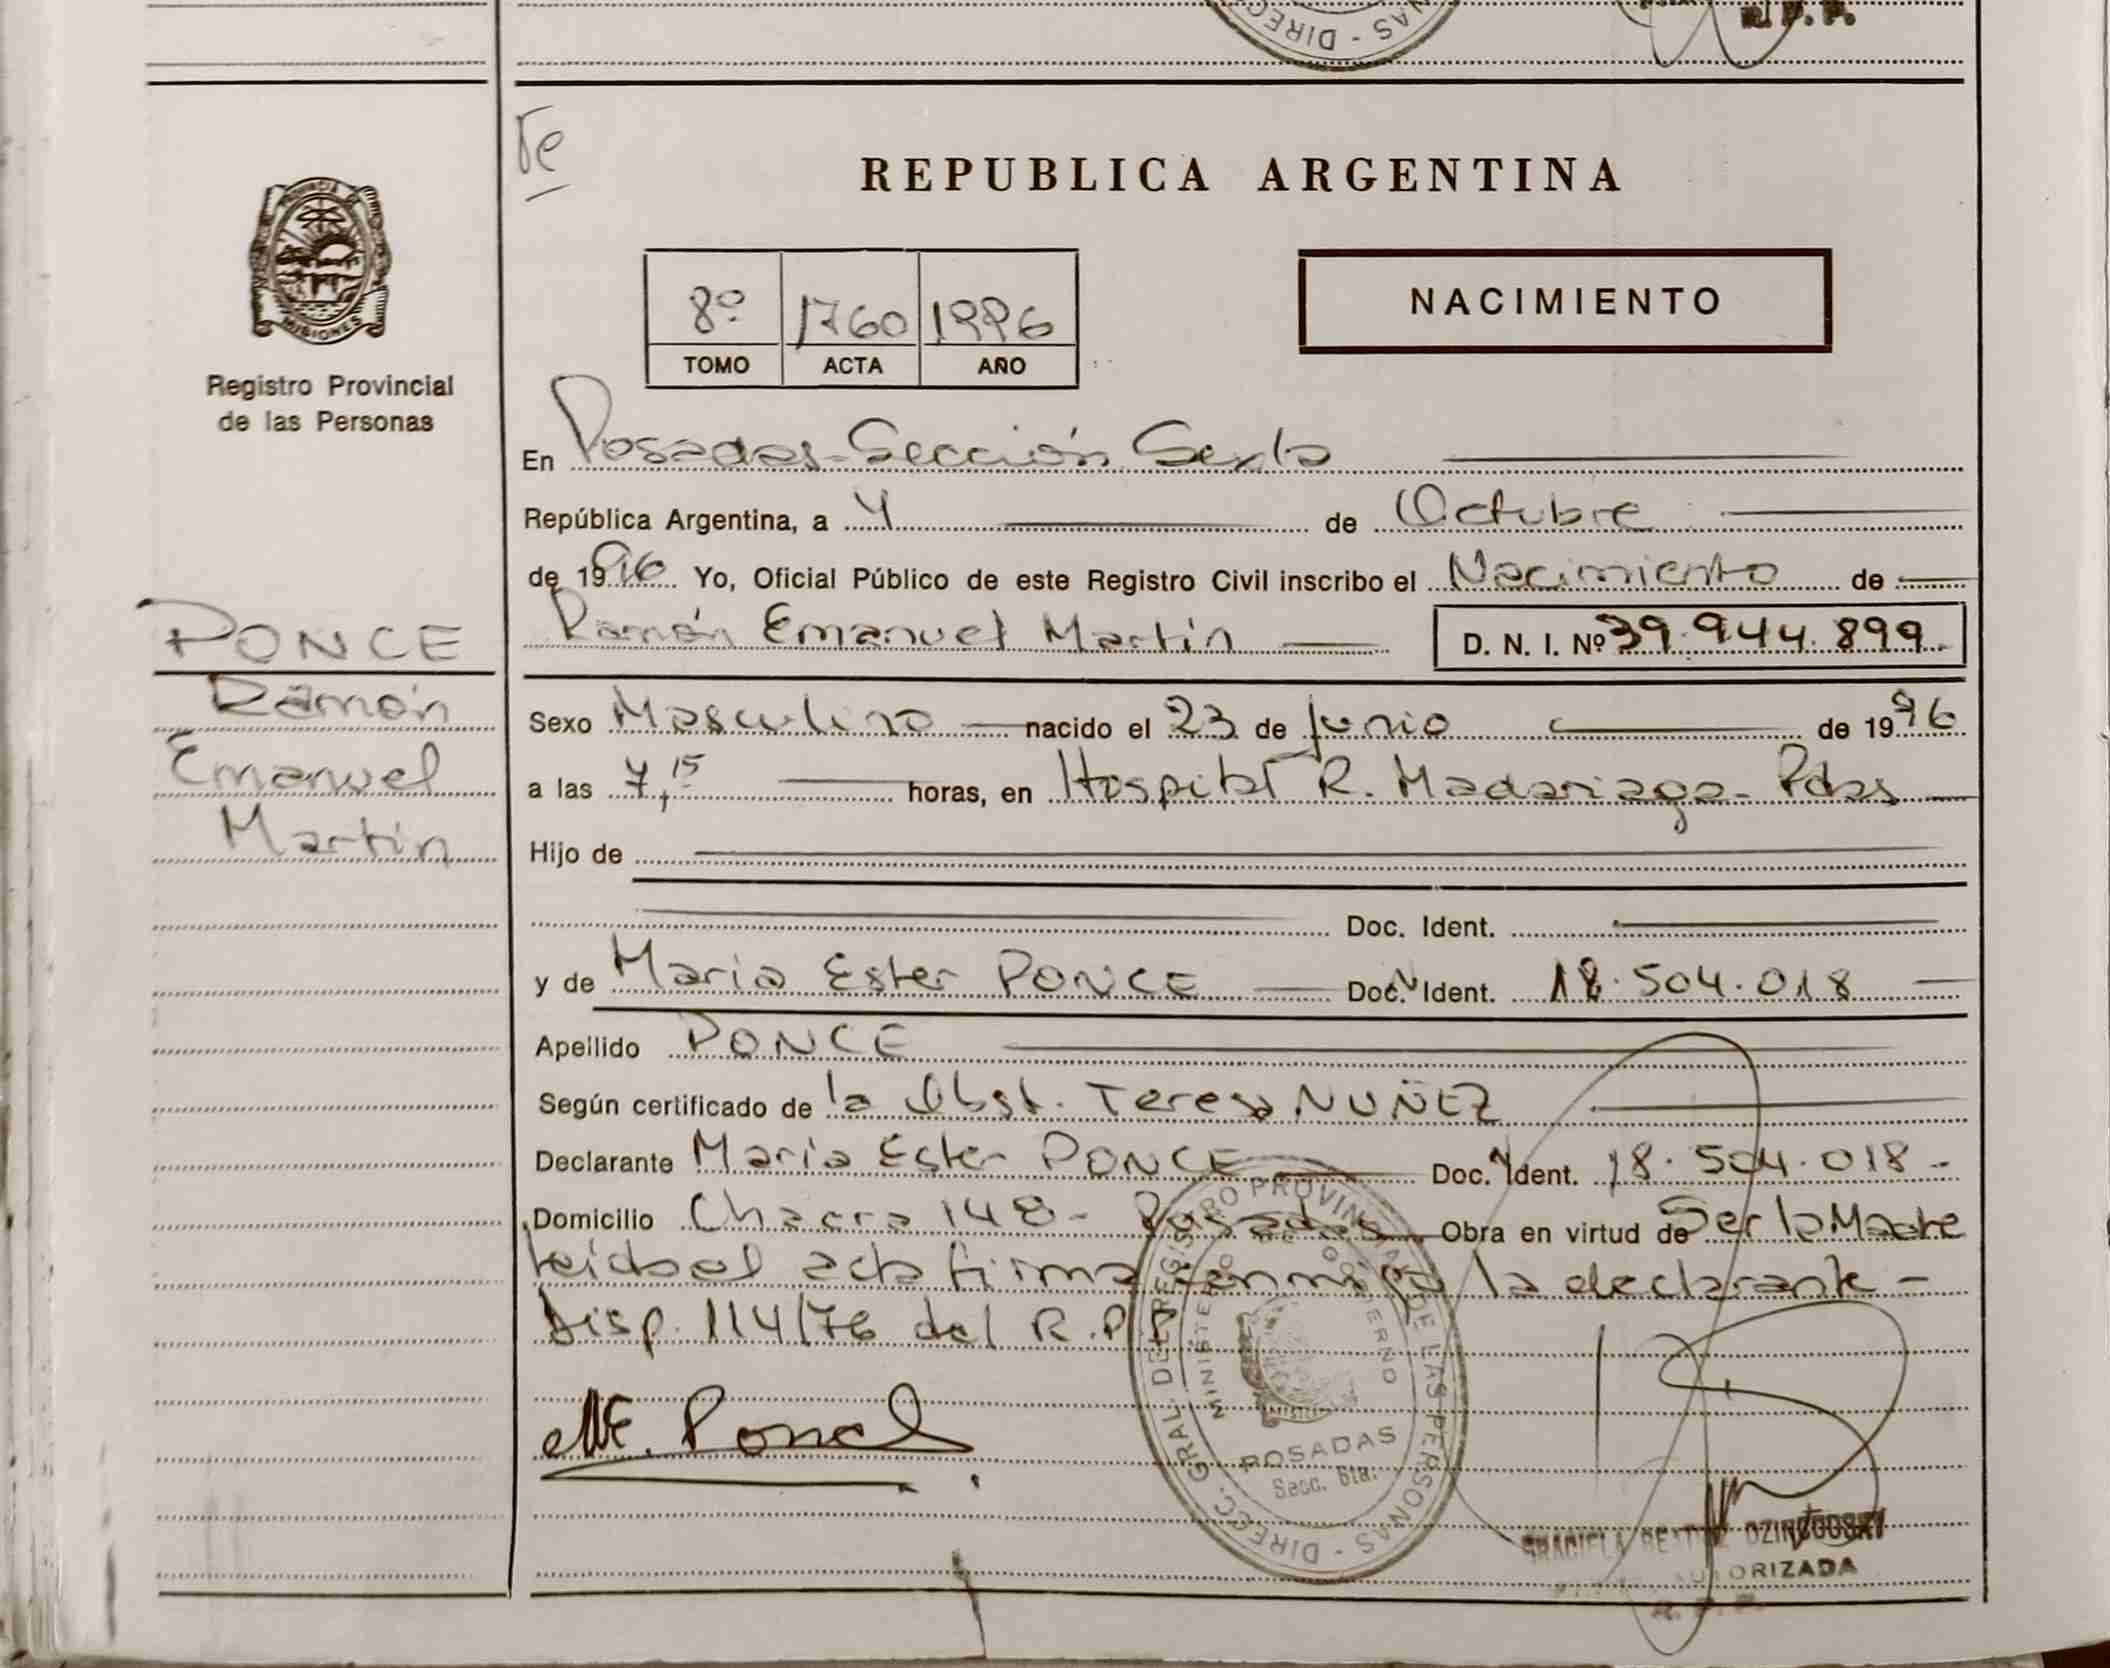 NAS - DIREC
R. P. P.
Te
PROVINCIA
MISIONES
Registro Provincial
de las Personas
PONCE
Ramón
Emanuel
Martín
REPUBLICA ARGENTINA
8º 1760 1996
TOMO ACTA AÑO
NACIMIENTO
En Posadas-Sección Sexta
República Argentina, a 4 de Octubre
de 1996 Yo, Oficial Público de este Registro Civil inscribo el Nacimiento de
Ramón Emanuel Martín D. N. I. Nº 39.944.899
Sexo Masculino nacido el 23 de Junio de 1996
a las 7,15 horas, en Hospital R. Madariaga- Pdas
Hijo de
Doc. Ident.
y de Maria Ester PONCE Doc. Ident. 18.504.018
Apellido PONCE
Según certificado de la Obst. Teresa NUÑEZ
Declarante Maria Ester PONCE Doc. Ident. 18.504.018-
Domicilio Chacra 148- Posadas Obra en virtud de Ser la Madre
leida el acta firma la declarante-
Disp. 114/76 del R.P.P.
ME. Ponce
DIRECC. GRAL. DEL REGISTRO PROVINCIAL DE LAS PERSONAS
MINISTERIO DE GOBIERNO
POSADAS
Secc. 6ta.
GRACIELA
AUTORIZADA
R. P. P.